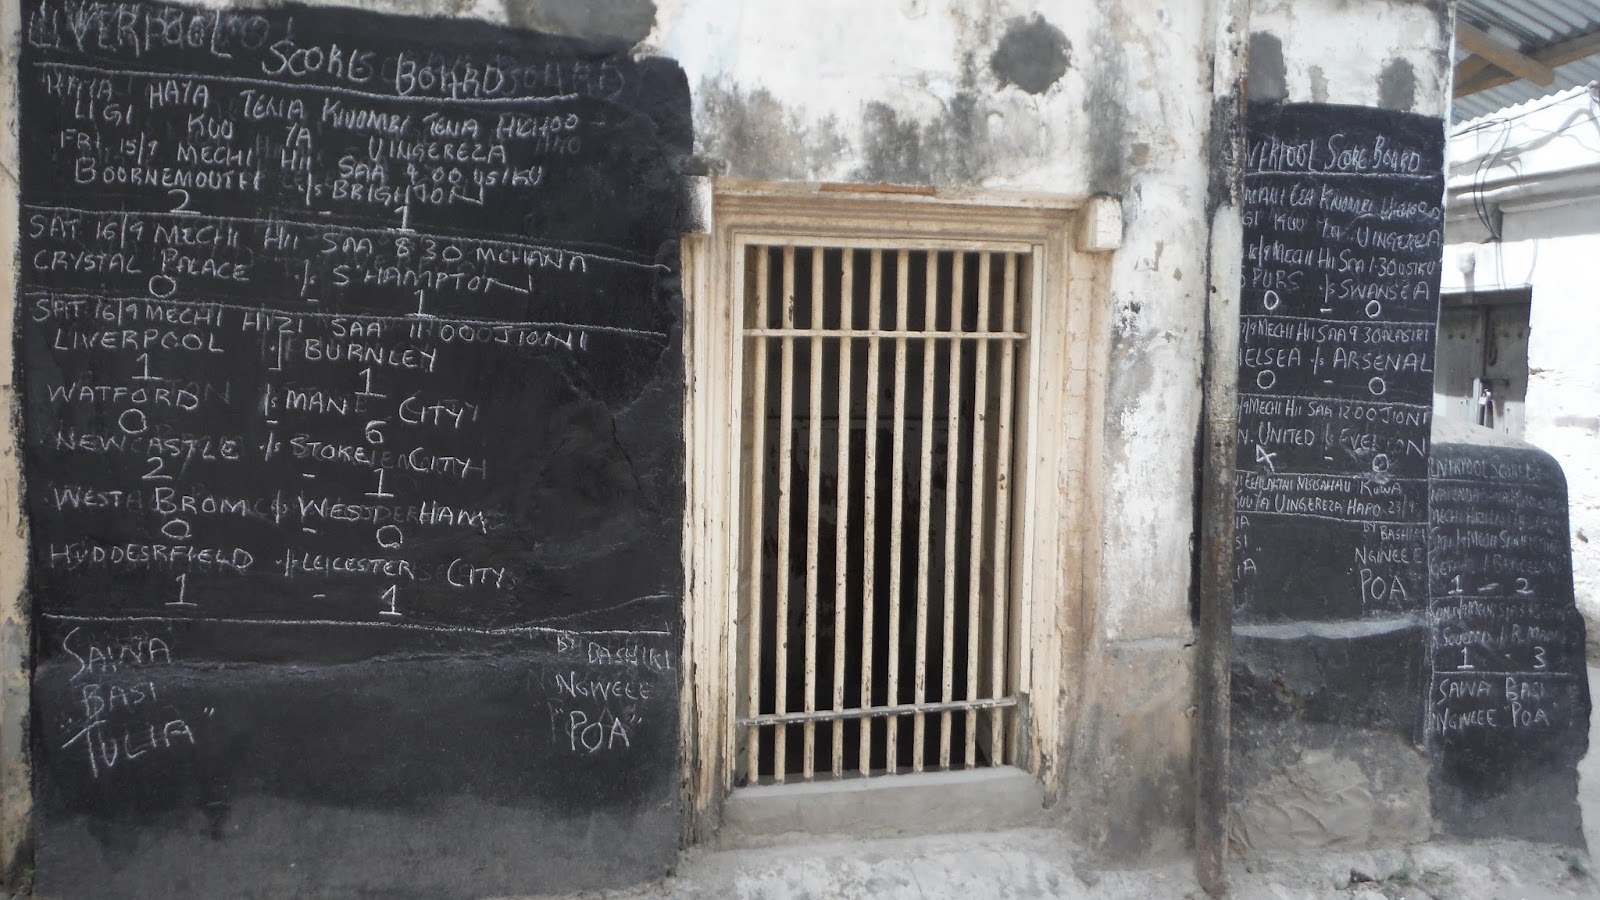 LIVERPOOL SCORE BOARD
HAYA HAYA TENA KIVUMBI TENA HICHOO
LIGI KUU YA UINGEREZA
FRI, 15/9 MECHI HII SAA 4 00 USIKU
BOORNEMOUTH V/S BRIGHTON
2 - 1
SAT 16/9 MECHI HII SAA 8 30 MCHANA
CRYSTAL PALACE V/S S'HAMPTON
0 - 1
SAT 16/9 MECHI HIZI SAA 11 00 JIONI
LIVERPOOL V/S BURNLEY
1 1
WATFORD V/S MAN CITY
0 6
NEWCASTLE V/S STOKE CITY
2 - 1
WEST BROM V/S WEST HAM
0 - 0
HUDDESRFIELD V/S LEICESTER CITY
1 - 1
SAWA BY BASHIKI
BASI NGWELE
"TULIA" "POA"
VERPOOL SCORE BOARD
KIVUMBI HICHOO
GI KUU YA UINGEREZA
16/9 MECHI HII SAA 1:30 USIKU
PURS V/S SWANSEA
0 - 0
/9 MECHI HII SAA 9 30 ALASIRI
ELSEA V/S ARSENAL
0 - 0
/9 MECHI HII SAA 12 00 JIONI
N. UNITED V/S EVERTON
4 - 0
MSISAHAU KUWA
KUU YA UINGEREZA HAPO 23/9
IA BY BASHIKI
SI NGWELE
IA" "POA"
LIVERPOOL SCORE
1 - 2
1 - 3
SAWA BASI
NGWLEE "POA"